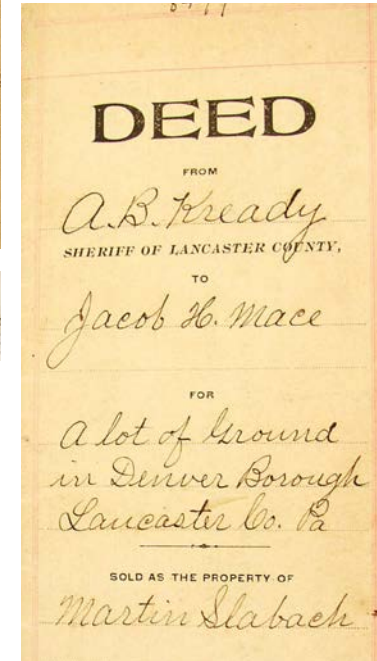 DEED
FROM
A. B. Kready
SHERIFF OF LANCASTER COUNTY,
TO
Jacob H. Mace
FOR
A lot of Ground
in Denver Borough
Lancaster Co. Pa
SOLD AS THE PROPERTY OF
Martin Slabach